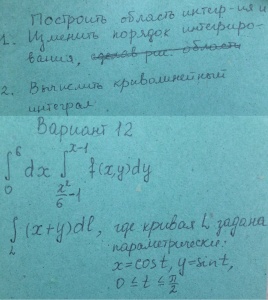 Построить область интегр-ия и
1. Изменить порядок интегриро-
вания,
2. Вычислить криволинейный
интеграл.
Вариант 12
∫₀⁶ dx ∫_{x²/6 - 1}^{x-1} f(x,y)dy
∫_L (x+y)dl, где кривая L задана
параметрически:
x=cost, y=sint,
0 ≤ t ≤ π/2